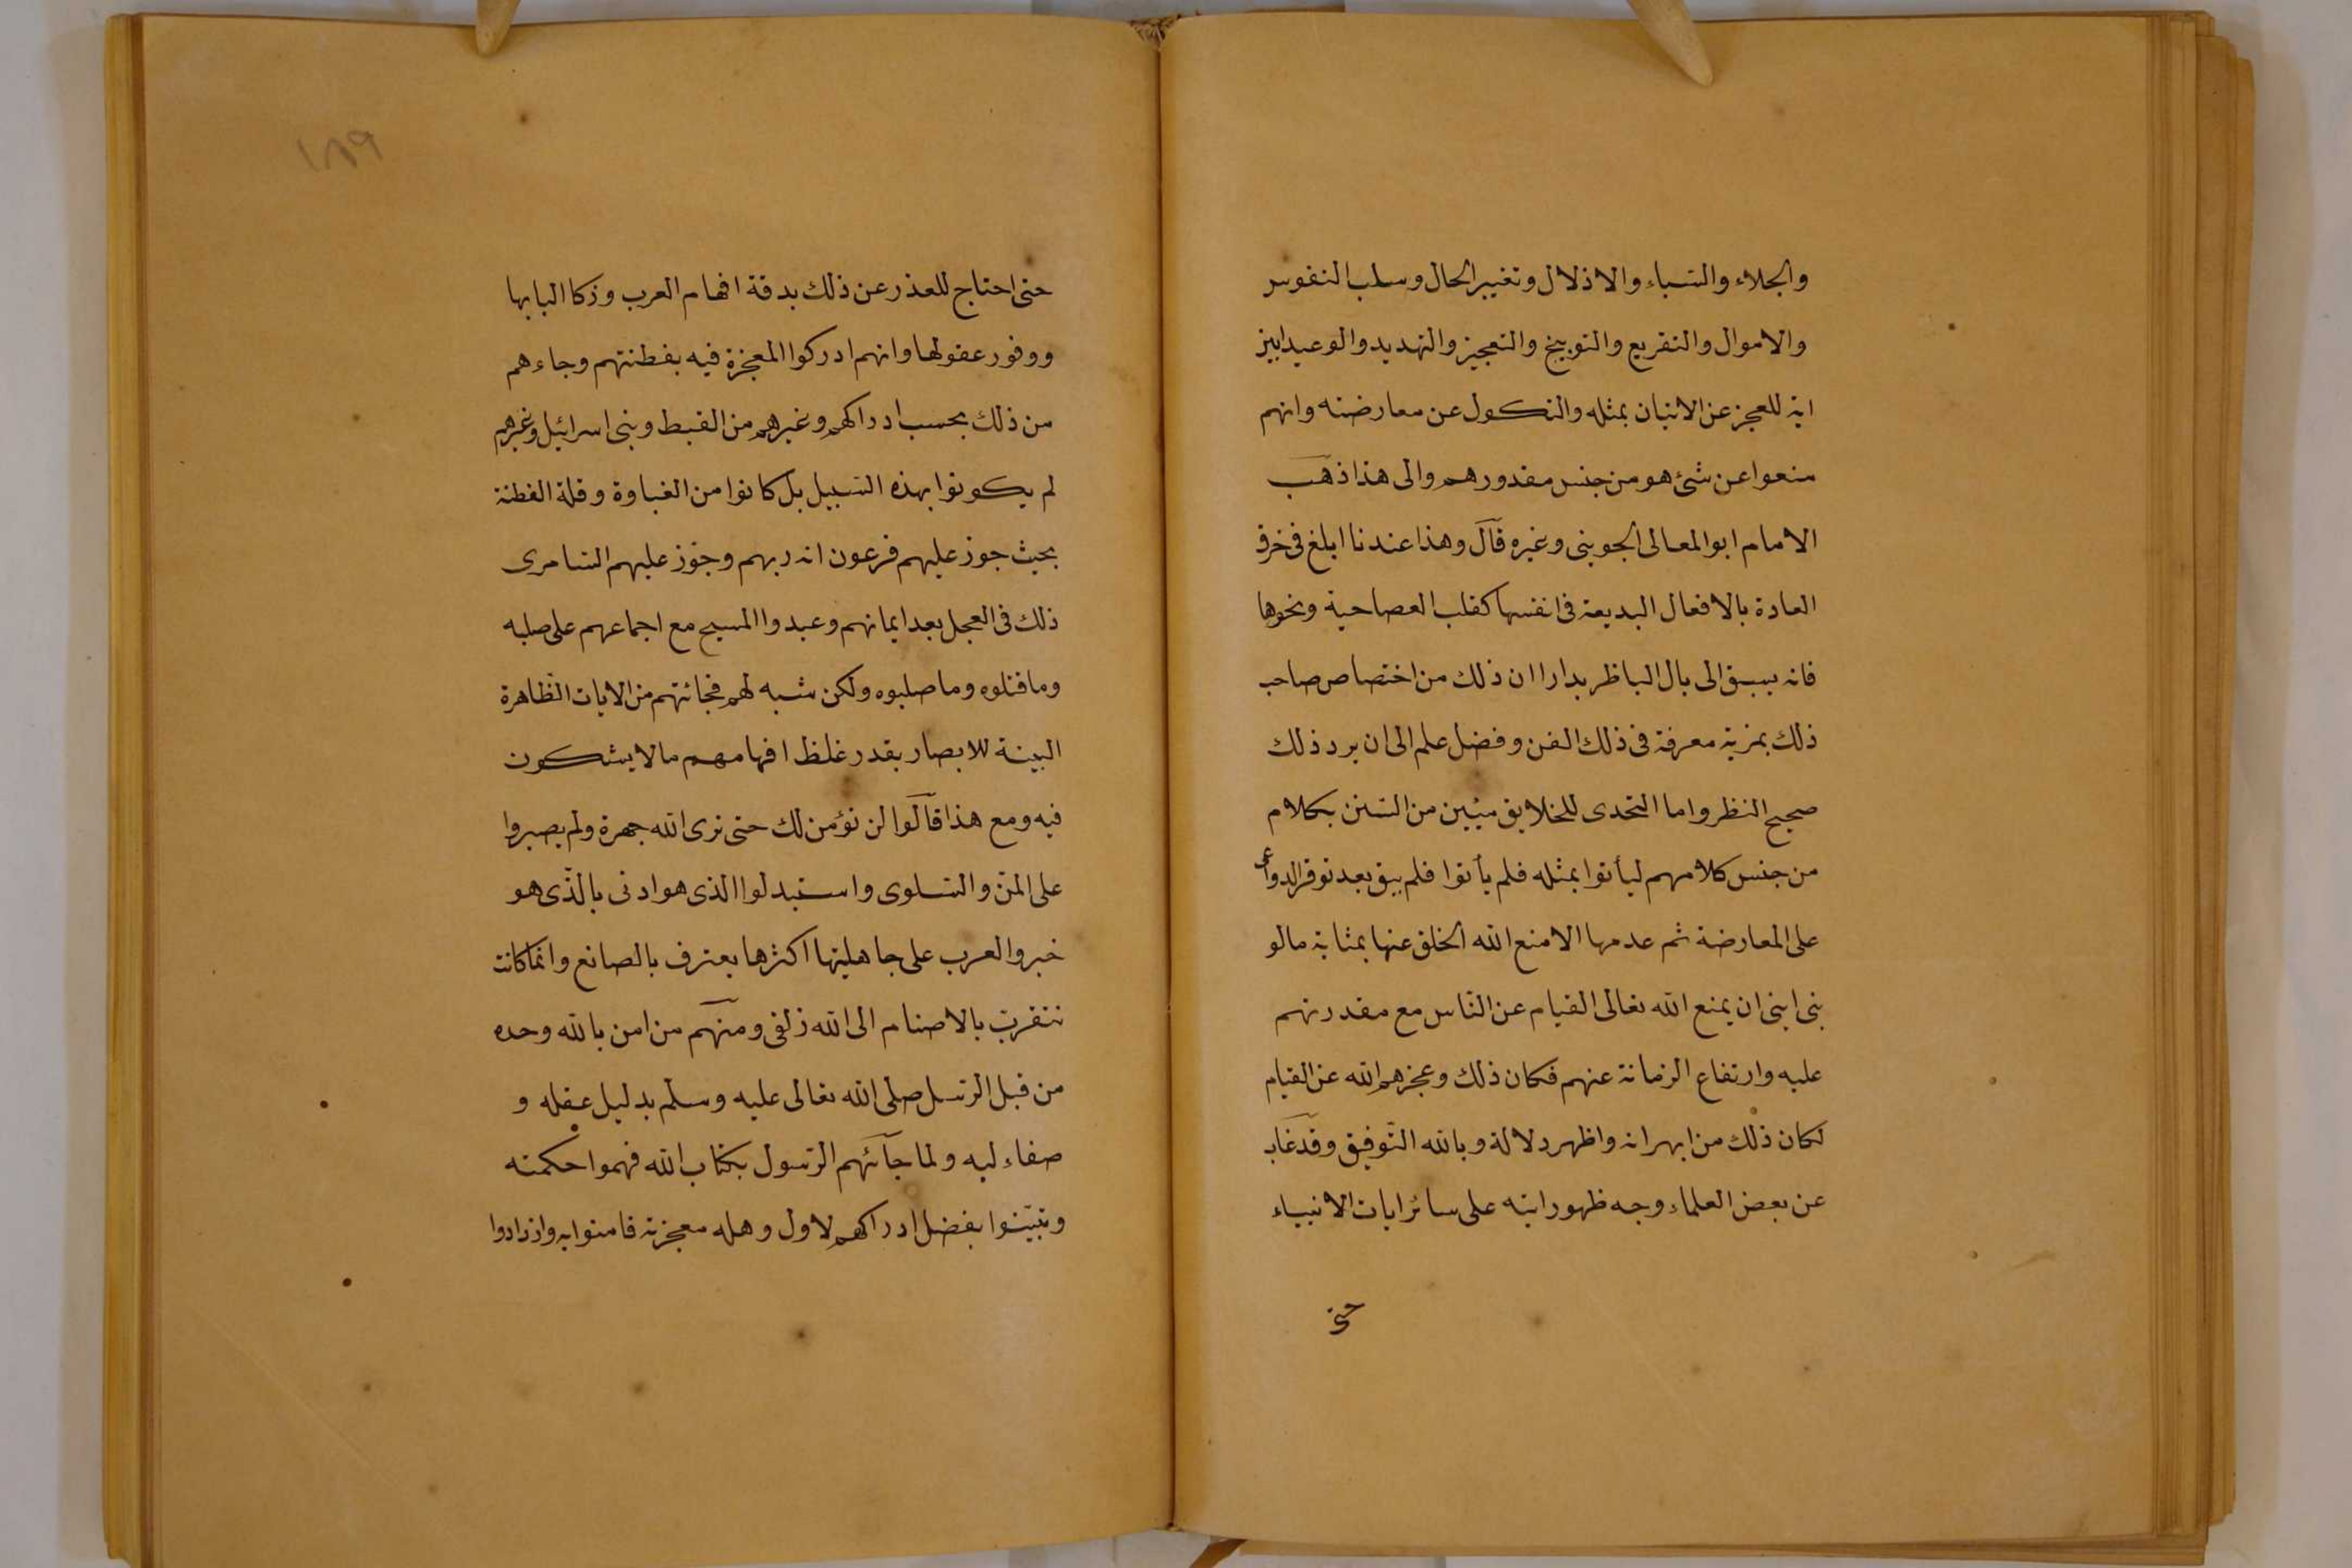 والجلاء والسباء والاذلال وتغيير الحال وسلب النفوس
والاموال والتقريع والتوبيخ والتعجيز والتهديد والوعيد ابين
اية للعجز عن الاتيان بمثله والنكول عن معارضته وانهم
منعوا عن شئ هو من جنس مقدورهم والى هذا ذهب
الامام ابو المعالى الجوينى وغيره قال وهذا عندنا ابلغ فى خرق
العادة بالافعال البديعة فى انفسها كقلب العصا حية ونحوها
فانه يسبق الى بال الناظر بدارا ان ذلك من اختصاص صاحب
ذلك بمزية معرفة فى ذلك الفن وفضل علم الى ان يرد ذلك
صحيح النظر واما التحدى للخلايق مئين من السنن بكلام
من جنس كلامهم ليأتوا بمثله فلم يأتوا فلم يبق بعد توفر الدواعى
على المعارضة ثم عدمها الا منع الله الخلق عنها بمثابة مالو
بنى ابنى ان يمنع الله تعالى القيام عن الناس مع مقدرتهم
عليه وارتفاع الزمانة عنهم فكان ذلك وعجزهم الله عن القيام
لكان ذلك من ابهر انه واظهر دلالة وبالله التوفيق وقد غاب
عن بعض العلماء وجه ظهور ايته على سائر ايات الانبياء
حتى
١٨٩
حتى احتاج للعذر عن ذلك بدقة افهام العرب وزكا البابها
ووفور عقولها وانهم ادركوا المعجزة فيه بفطنتهم وجاءهم
من ذلك بحسب ادراكهم وغيرهم من القبط وبنى اسرائيل وغيرهم
لم يكونوا بهذه السبيل بل كانوا من الغباوة وقلة الفطنة
بحيث جوز عليهم فرعون انه ربهم وجوز عليهم السامرى
ذلك فى العجل بعد ايمانهم وعبدوا المسيح مع اجماعهم على صلبه
وما قتلوه وما صلبوه ولكن شبه لهم فجائتهم من الايات الظاهرة
البينة للابصار بقدر غلظ افهامهم ما لا يشكون
فيه ومع هذا قالوا لن نؤمن لك حتى نرى الله جهرة ولم يصبروا
على المن والسلوى واستبدلوا الذى هو ادنى بالذى هو
خير والعرب على جاهليتها اكثرها يعترف بالصانع وانما كانت
تتقرب بالاصنام الى الله زلفى ومنهم من امن بالله وحده
من قبل الرسل صلى الله تعالى عليه وسلم بدليل عقله و
صفاء لبه ولما جآئهم الرسول بكتاب الله فهموا حكمته
وتبينوا بفضل ادراكهم لاول وهله معجزته فامنوا به وازدادوا